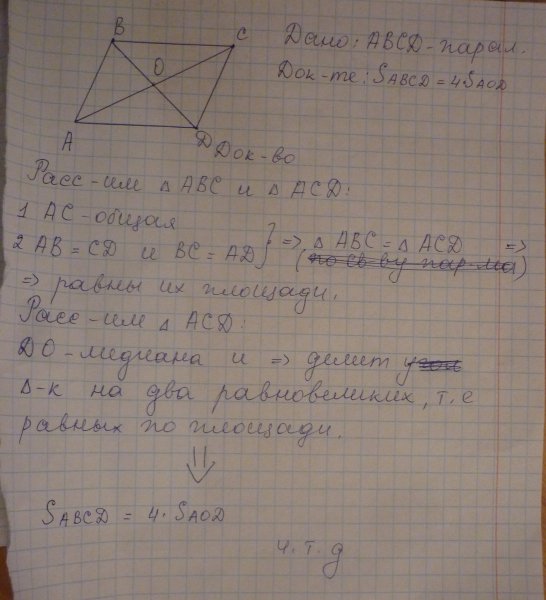 B
C
O
A
D
Дано: ABCD-парал.
Док-те: SABCD = 4SAOD
Док-во
Расс-им △ ABC и △ ACD:
1 AC-общая
2 AB = CD и BC = AD } => △ ABC = △ ACD =>
(по св-ву пар-ма)
=> равны их площади.
Расс-им △ ACD:
DO-медиана и => делит угол
△-к на два равновеликих, т.е
равных по площади.
⇓
SABCD = 4·SAOD
ч.т.д